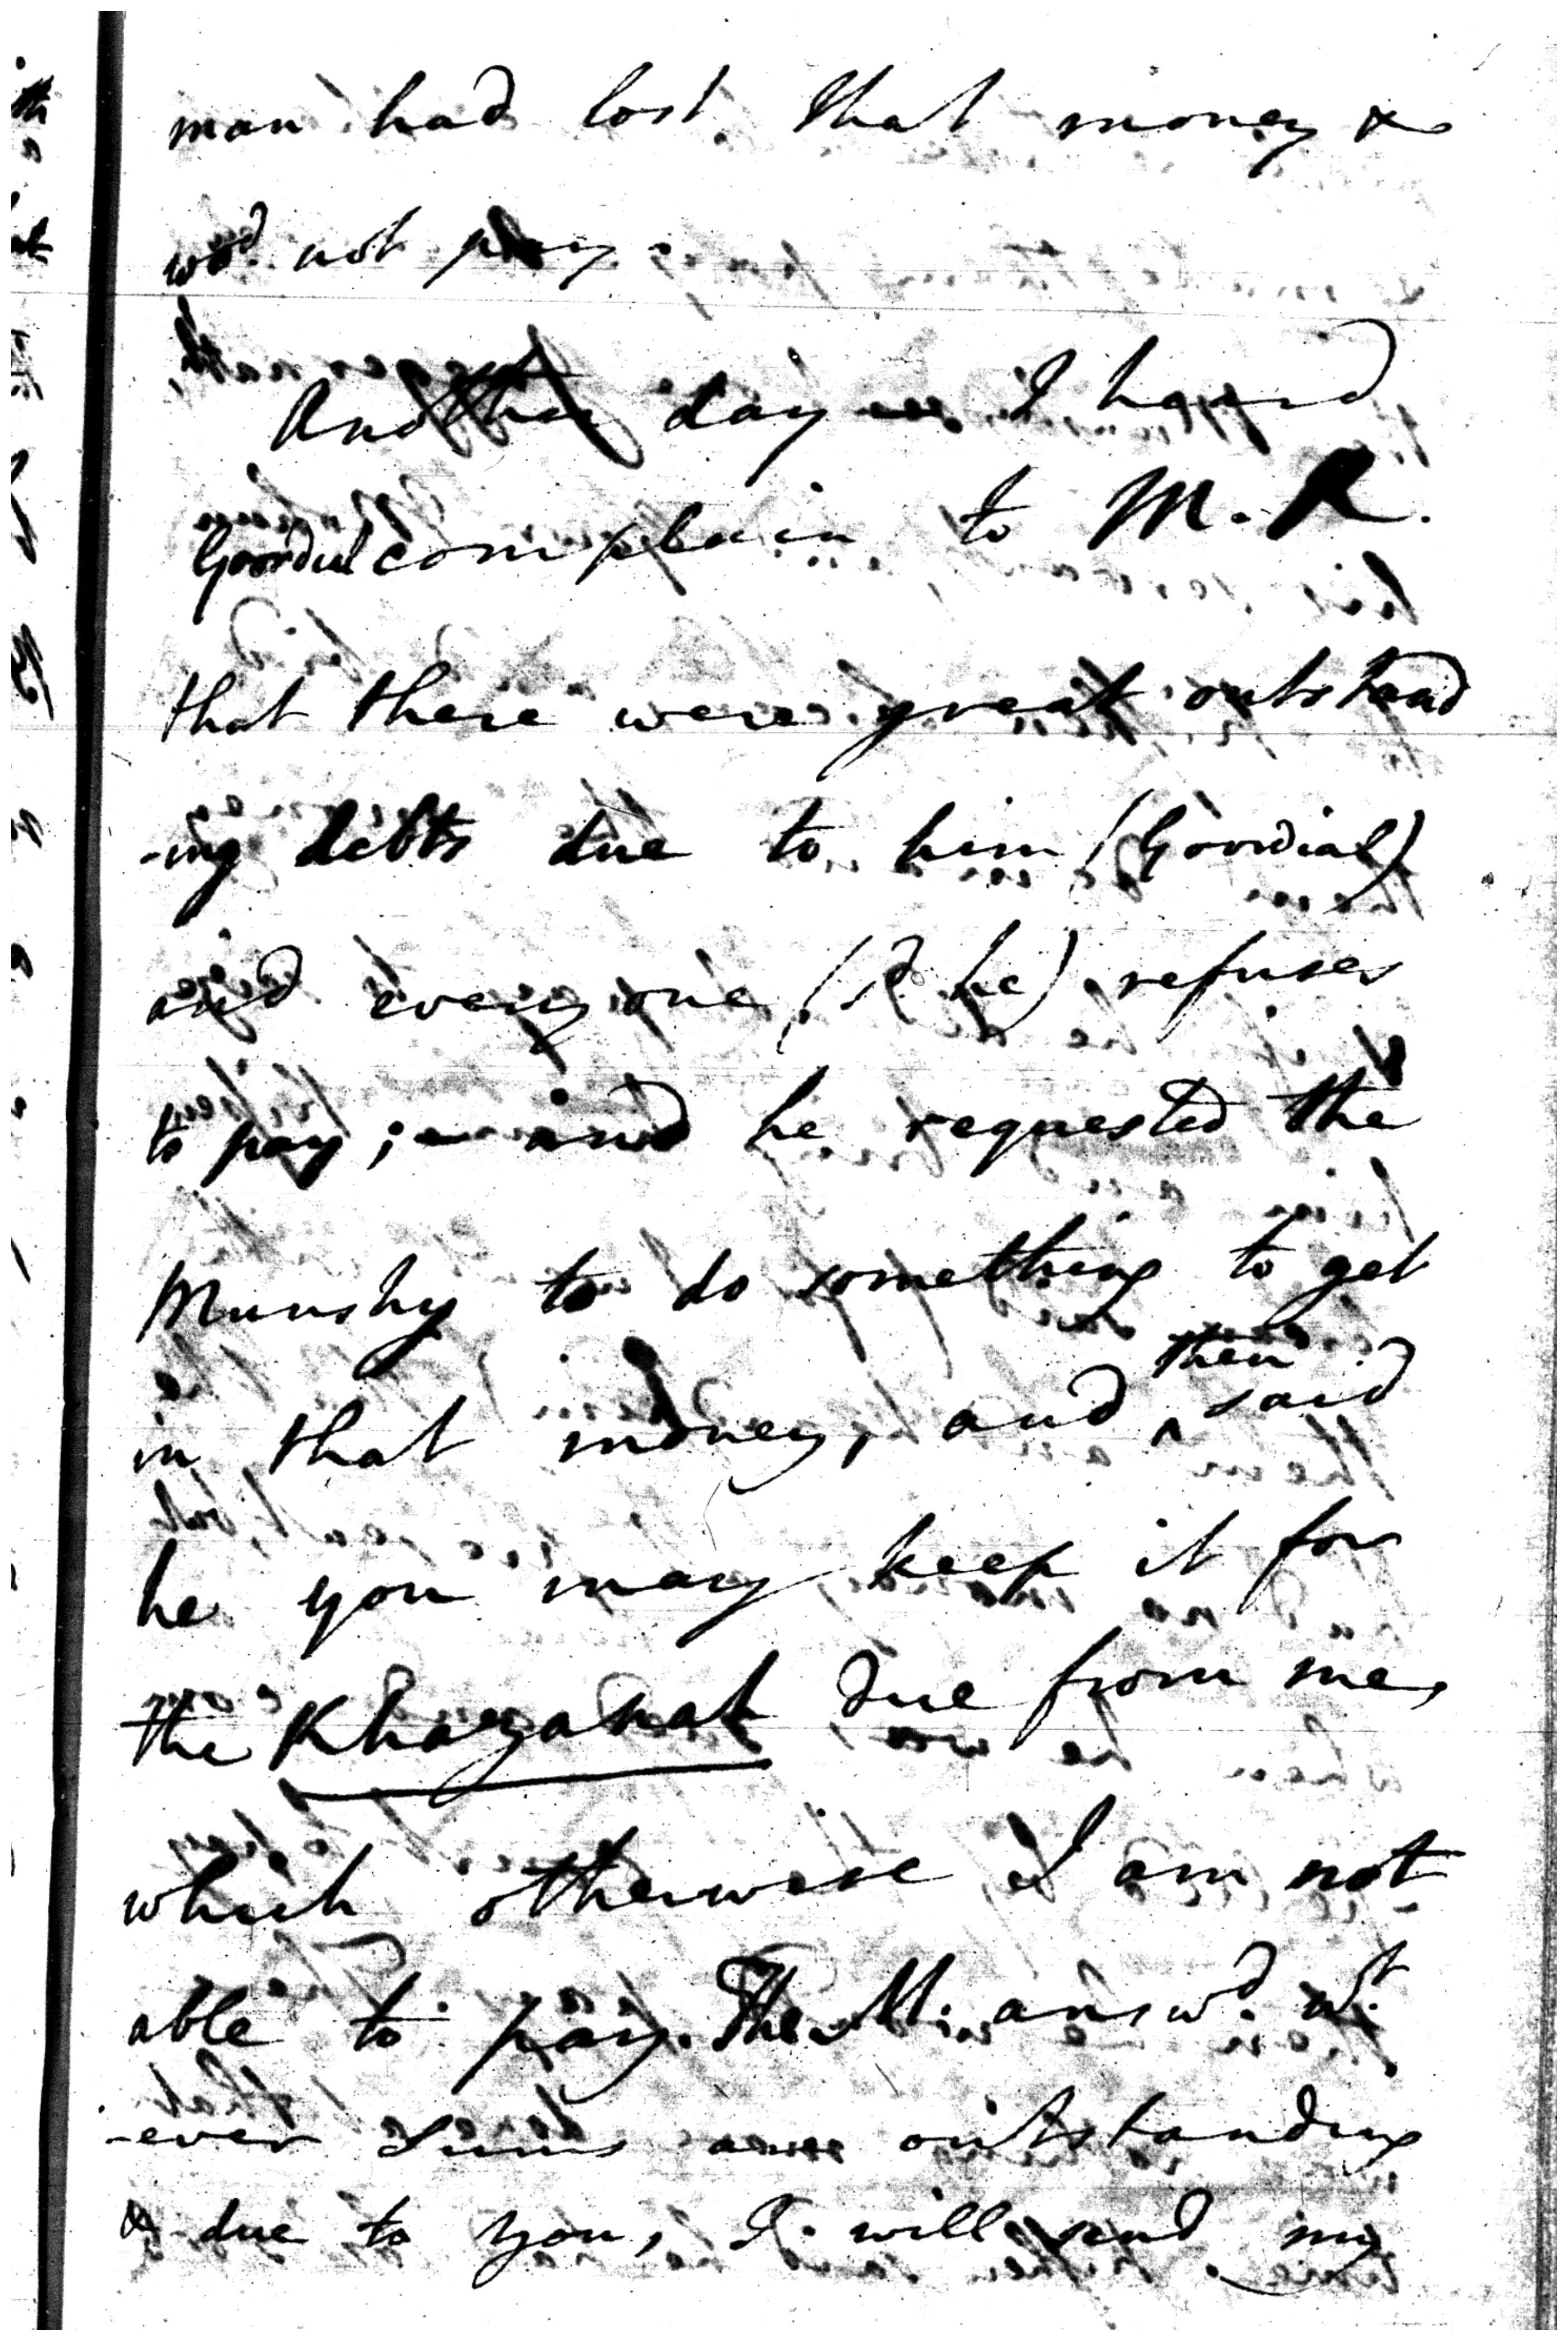 man had lost that money &
wod. not pay.
Another day I heard
Goordial complain to M. R.
that there were great outstand
-ing debts due to him (Goordial)
and every one (sd. he) refuses
to pay; - and he requested the
Munshy to do something to get
in that money, and then said
he you may keep it for
the Khazanah due from me,
which otherwise I am not
able to pay. The M. answd. wt.
-ever sums are outstanding
& due to you, I will send my